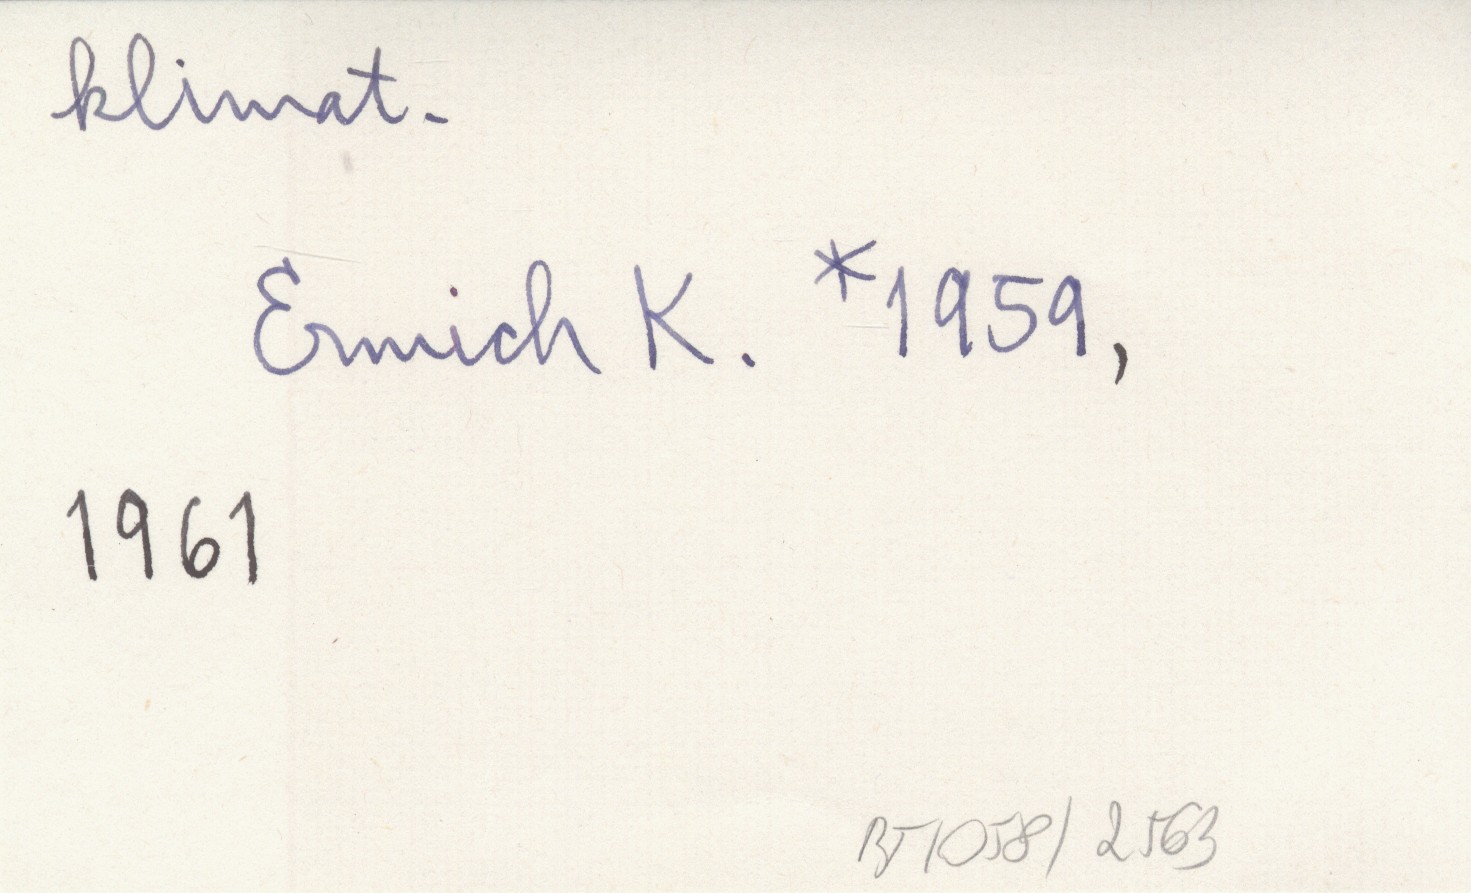 klimat.
Ermich K. *1959,
1961
BT1058/2563